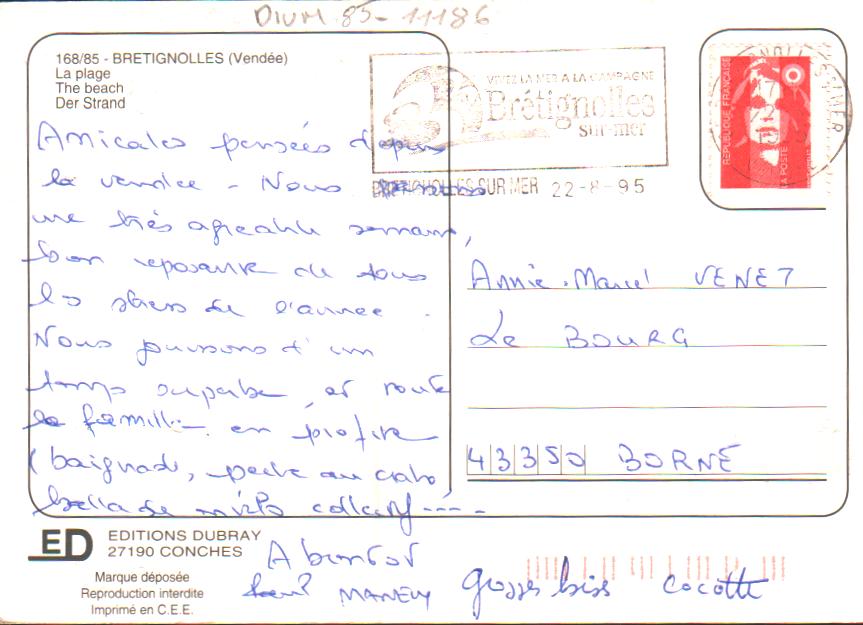 DIUM 85-11186
168/85 - BRETIGNOLLES (Vendée)
La plage
The beach
Der Strand
VIVEZ LA MER A LA CAMPAGNE
Brétignolles
sur-mer
BRETIGNOLLES SUR MER 22-8-95
REPUBLIQUE FRANÇAISE
LA POSTE
Amicales pensées depuis
la vendée - Nous
une très agréable semaine,
bien reposante de tous
les stress de l'année.
Nous jouissons d'un
temps superbe, et toute
la famille en profite
(baignade, peche au crabe,
ballade collectif ----
A bientot
MANELY grosses bises cocotte
Annie-Marcel VENET
Le BOURG
43350 BORNE
ED EDITIONS DUBRAY
27190 CONCHES
Marque déposée
Reproduction interdite
Imprimé en C.E.E.